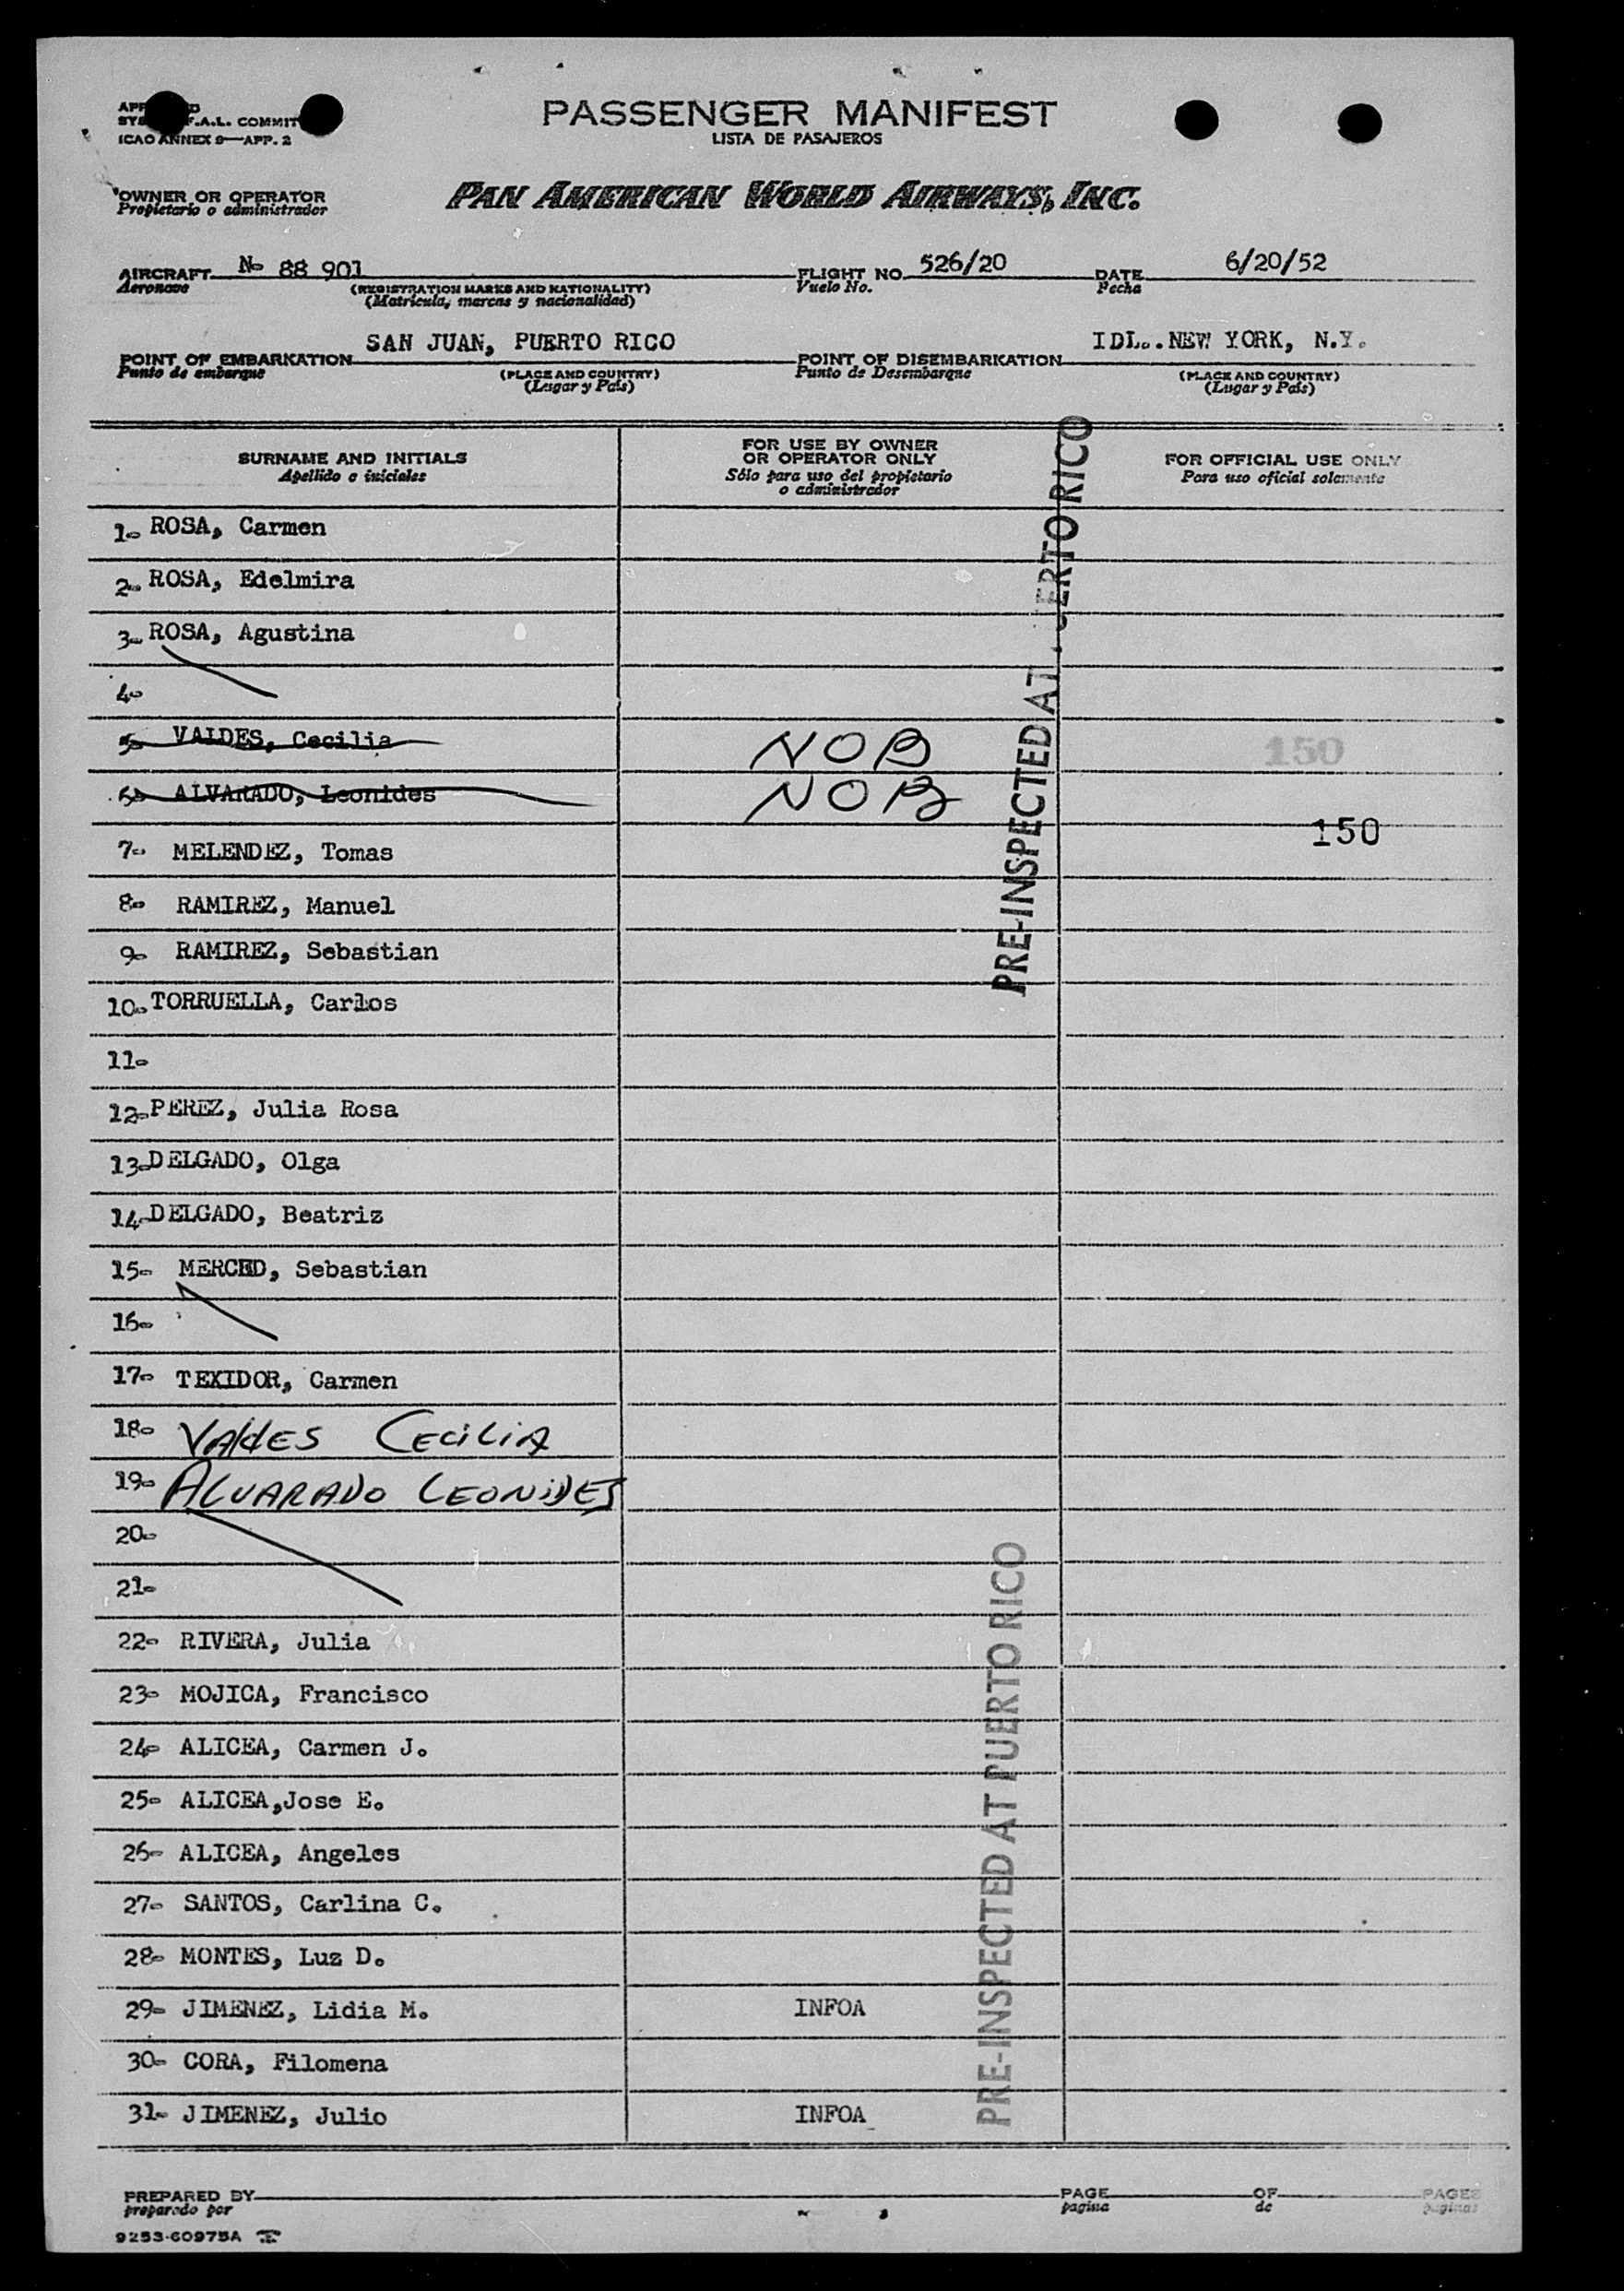 PASSENGER MANIFEST
LISTA DE PASAJEROS
F.A.L.
ICAO ANNEX 9—APP. 2
OWNER OR OPERATOR
Propietario o administrador
PAN AMERICAN WORLD AIRWAYS, INC.
AIRCRAFT No 88 901
Aeronave
(REGISTRATION MARKS AND NATIONALITY)
(Matrícula, marcas y nacionalidad)
FLIGHT NO. 526/20
Vuelo No.
DATE 6/20/52
Fecha
POINT OF EMBARKATION SAN JUAN, PUERTO RICO
Punto de embarque
(PLACE AND COUNTRY)
(Lugar y País)
POINT OF DISEMBARKATION IDL..NEW YORK, N.Y.
Punto de Desembarque
(PLACE AND COUNTRY)
(Lugar y País)
SURNAME AND INITIALS
Apellido e iniciales
FOR USE BY OWNER
OR OPERATOR ONLY
Sólo para uso del propietario
o administrador
FOR OFFICIAL USE ONLY
Para uso oficial solamente
1- ROSA, Carmen
2- ROSA, Edelmira
3- ROSA, Agustina
4-
5- VALDES, Cecilia NOB 150
6- ALVARADO, Leonides NOB
150
7- MELENDEZ, Tomas
8- RAMIREZ, Manuel
9- RAMIREZ, Sebastian
10- TORRUELLA, Carlos
11-
12- PEREZ, Julia Rosa
13- DELGADO, Olga
14- DELGADO, Beatriz
15- MERCED, Sebastian
16-
17- TEXIDOR, Carmen
18- VAldES CECiLiA
19- ALVARADO LEONiDES
20-
21-
22- RIVERA, Julia
23- MOJICA, Francisco
24- ALICEA, Carmen J.
25- ALICEA,Jose E.
26- ALICEA, Angeles
27- SANTOS, Carlina C.
28- MONTES, Luz D.
29- JIMENEZ, Lidia M. INFOA
30- CORA, Filomena
31- JIMENEZ, Julio INFOA
PRE-INSPECTED AT PUERTO RICO
PRE-INSPECTED AT PUERTO RICO
PREPARED BY
preparado por
PAGE OF PAGES
pagina de paginas
9253-60975A